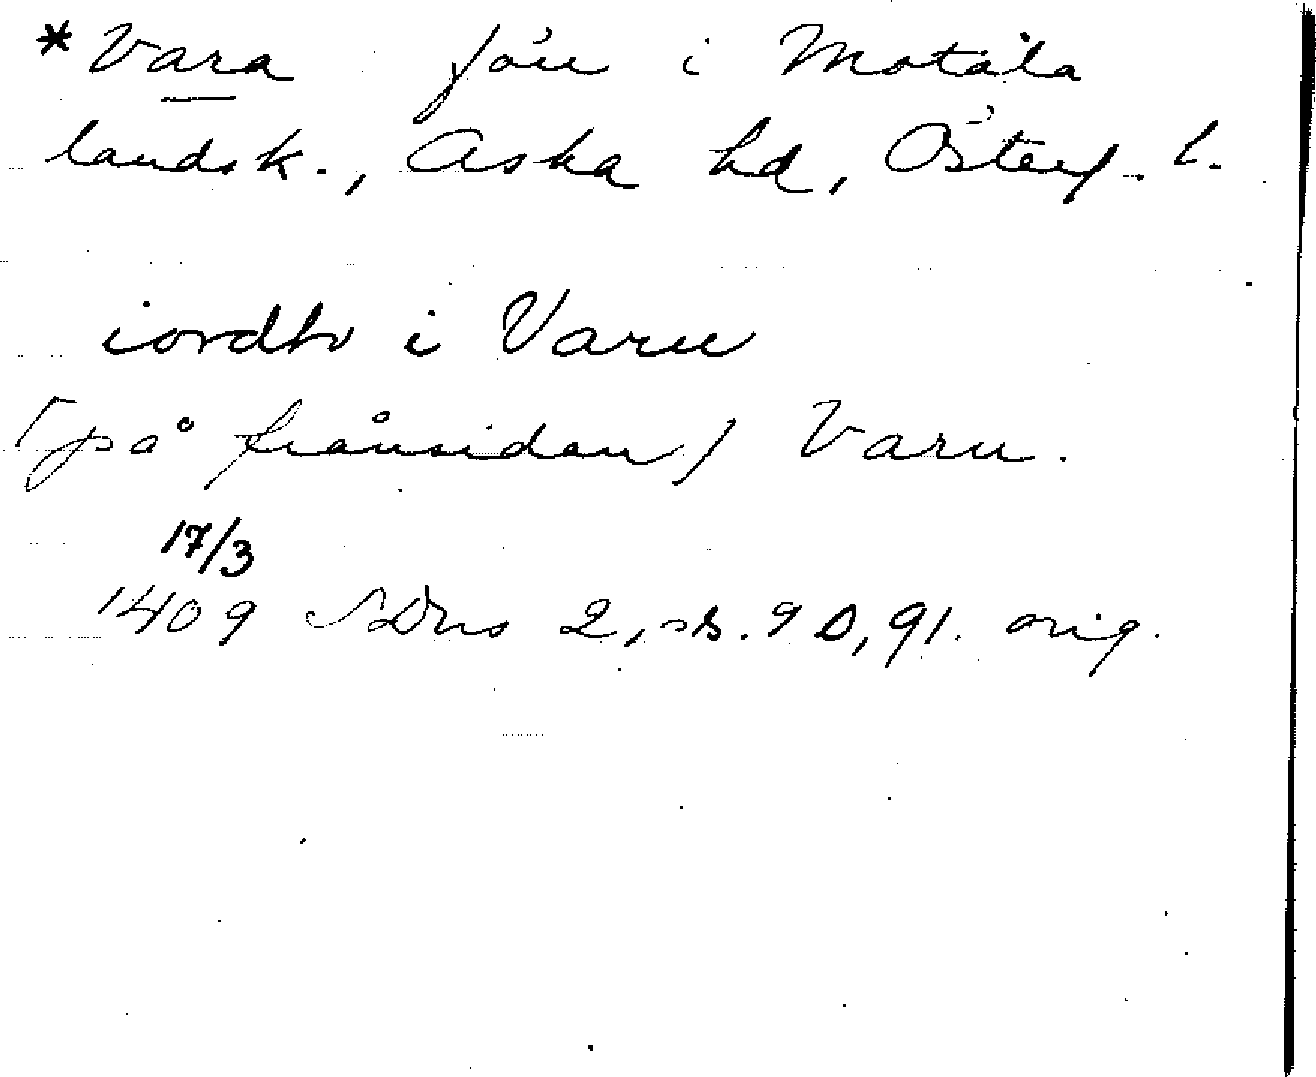 *Vara förr i Motala
landsk., Aska hd, Österg. l.
iordh i Varu
[på frånsidan] Varu.
17/3
1409 SDns 2, s. 90, 91. orig.